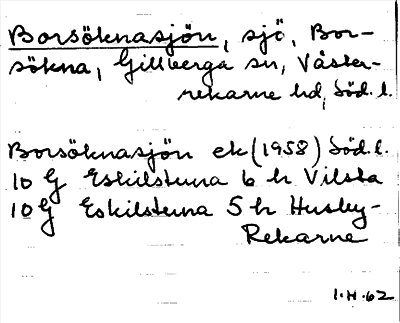 Borsöknasjön, sjö, Bor-
sökna, Gillberga sn, Väster-
rekarne hd, Söd. l.
Borsöknasjön ek (1958) Söd. l.
10 G Eskilstuna 6 h Vilsta
10 G Eskilstuna 5 h Husby-
Rekarne
1.H.62